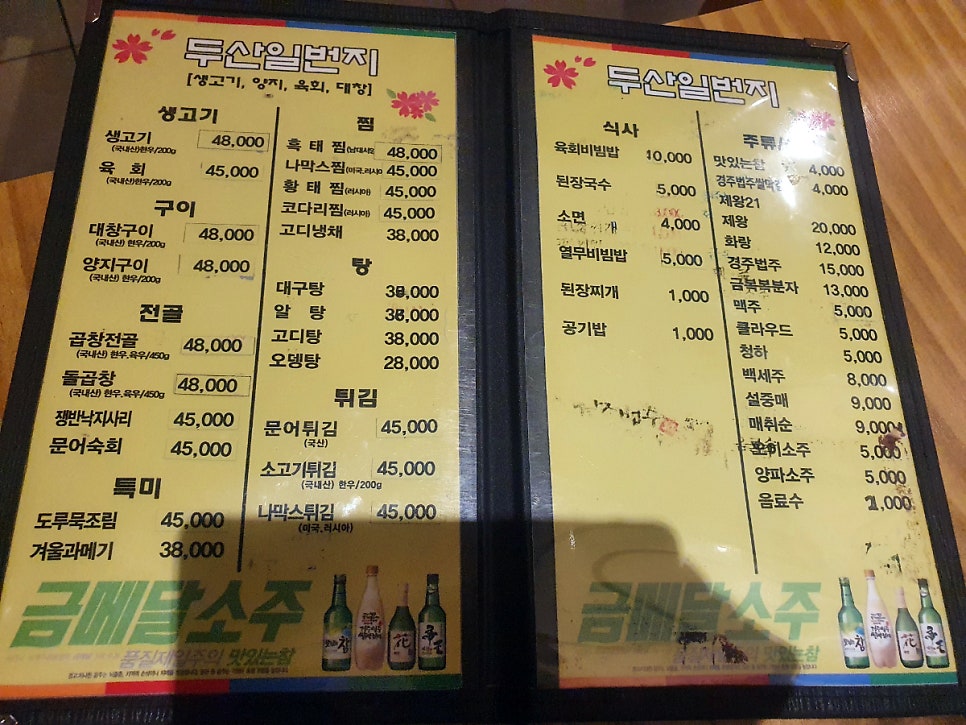 두산일번지
[생고기, 양지, 육회, 대창]
생고기
생고기 48,000
(국내산)한우/200g
육 회 45,000
(국내산)한우/200g
구이
대창구이 48,000
(국내산) 한우/200g
양지구이 48,000
(국내산) 한우/200g
전골
곱창전골 48,000
(국내산) 한우,육우/450g
돌곱창 48,000
(국내산) 한우,육우/450g
쟁반낙지사리 45,000
문어숙회 45,000
특미
도루묵조림 45,000
겨울과메기 38,000
찜
흑 태 찜 48,000
나막스찜(미국,러시아 45,000
황 태 찜(러시아) 45,000
코다리찜(러시아) 45,000
고디냉채 38,000
탕
대구탕 38,000
알 탕 38,000
고디탕 38,000
오뎅탕 28,000
튀김
문어튀김 45,000
(국산)
소고기튀김 45,000
(국내산) 한우/200g
나막스튀김 45,000
(미국,러시아)
금메달소주
맛있는참
두산일번지
식사
육회비빔밥 10,000
된장국수 5,000
소면 4,000
열무비빔밥 5,000
된장찌개 1,000
공기밥 1,000
주류/
맛있는참 4,000
경주법주쌀막걸 4,000
제왕21
제왕 20,000
화랑 12,000
경주법주 15,000
금복복분자 13,000
맥주 5,000
클라우드 5,000
청하 5,000
백세주 8,000
설중매 9,000
매취순 9,000
오이소주 5,000
양파소주 5,000
음료수 1,000
금메달소주
맛있는참